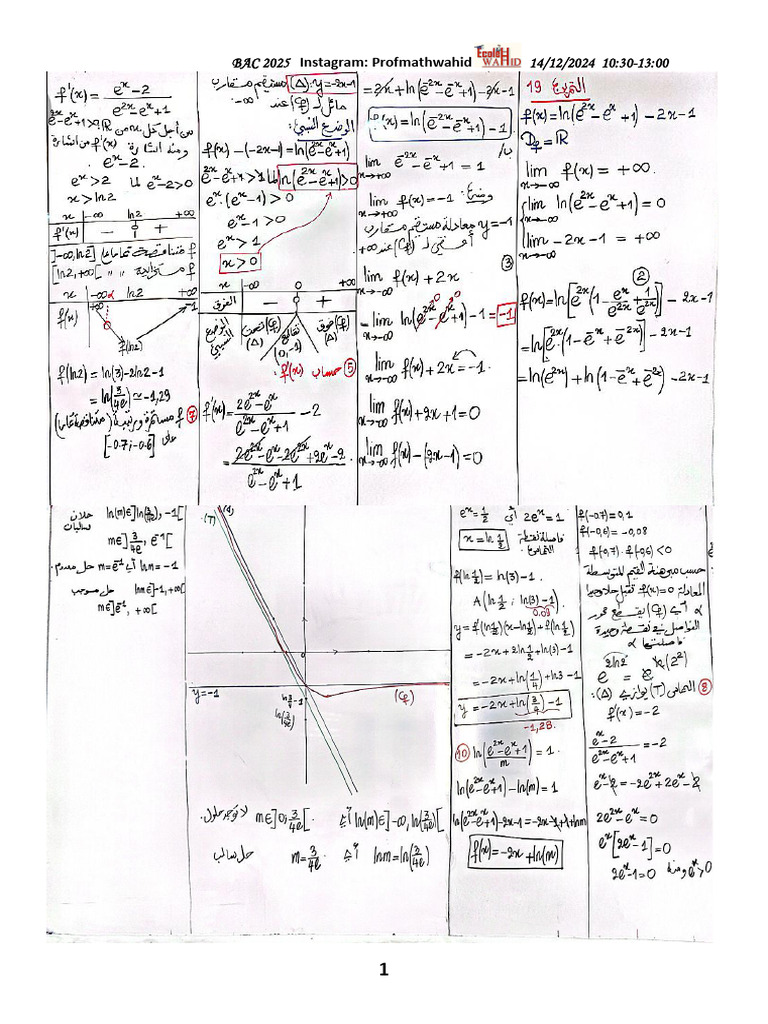 BAC 2025 Instagram: Profmathwahid Ecole WAHID 14/12/2024 10:30-13:00
التمرين 19
f(x)=ln(e^{2x}-e^x+1)-2x-1
D_f=ℝ
lim_{x→-∞} f(x)=+∞.
lim_{x→-∞} ln(e^{2x}-e^x+1)=0
lim_{x→-∞} -2x-1=+∞
②
f(x)=ln[e^{2x}(1-e^x/e^{2x}+1/e^{2x})]-2x-1
=ln[e^{2x}·(1-e^{-x}+e^{-2x})]-2x-1
=ln(e^{2x})+ln(1-e^{-x}+e^{-2x})-2x-1
=2x+ln(e^{-2x}-e^{-x}+1)-2x-1
f(x)=ln(e^{-2x}-e^{-x}+1)-1.
ب/
lim_{x→+∞} e^{-2x}-e^{-x}+1=1
ومنه: lim_{x→+∞} f(x)=-1
y=-1 معادلة مستقيم مقارب
أفقي لـ (Cf) عند +∞
③
lim_{x→-∞} f(x)+2x
=lim_{x→-∞} ln(e^{2x}-e^x+1)-1=-1
lim_{x→-∞} f(x)+2x=-1.
lim_{x→-∞} f(x)+2x+1=0
lim_{x→-∞} f(x)-(2x-1)=0
(Δ):y=-2x-1 مستقيم مقارب
مائل لـ (Cf) عند -∞
الوضع النسبي:
f(x)-(-2x-1)=ln(e^{2x}-e^x+1)
ln(e^{2x}-e^x+1)>0 لما e^{2x}-e^x+1>1
e^x·(e^x-1)>0
e^x-1>0
e^x>1
x>0
x -∞ 0 +∞
الفرق - 0 +
الوضع النسبي (Cf) تحت (Δ) تقاطع (0,-1) (Cf) فوق (Δ)
⑤ حساب f'(x):
f'(x)=(2e^{2x}-e^x)/(e^{2x}-e^x+1)-2
=(2e^{2x}-e^x-2e^{2x}+2e^x-2)/(e^{2x}-e^x+1)
f'(x)=(e^x-2)/(e^{2x}-e^x+1)
من أجل كل x من ℝ e^{2x}-e^x+1>0
ومنه إشارة f'(x) من إشارة
e^x-2.
e^x-2>0 لما e^x>2
x>ln2
x -∞ ln2 +∞
f'(x) - 0 +
f متناقصة تماما على ]-∞,ln2]
f متزايدة " " [ln2,+∞[
x -∞ α ln2 +∞
f(x) +∞ f(ln2) -1
f(ln2)=ln(3)-2ln2-1
=ln(3/4e)≃-1,29
⑦ f مستمرة ورتيبة (متناقصة تماما)
على [-0.7;-0.6]
f(-0.7)=0,1
f(-0,6)=-0,08
f(0,7)·f(0,6)<0
حسب مبرهنة القيم المتوسطة
المعادلة f(x)=0 تقبل حلا وحيدا
α أي (Cf) يقطع محور
الفواصل في نقطة وحيدة
فاصلتها α
⑧ المماس (T) يوازي (Δ):
f'(x)=-2
(e^x-2)/(e^{2x}-e^x+1)=-2
e^x-2=-2e^{2x}+2e^x-2
2e^{2x}-e^x=0
e^x[2e^x-1]=0
2e^x-1=0 ومنه e^x>0
e^x=1/2 أي 2e^x=1
x=ln 1/2 فاصلة نقطة
التماس.
f(ln 1/2)=ln(3)-1.
A(ln 1/2 ; ln(3)-1)
0.03
y=f'(ln 1/2)(x-ln 1/2)+f(ln 1/2)
=-2x+2ln 1/2+ln(3)-1
=-2x+ln(1/4)+ln3-1
y=-2x+ln(3/4)-1
-1,28.
⑩ ln((e^{2x}-e^x+1)/m)=1.
ln(e^{2x}-e^x+1)-ln(m)=1
ln(e^{2x}-e^x+1)-2x-1=-2x-1+1+lnm
f(x)=-2x+ln(m)
(T)
(Δ)
0
y=-1
ln 3/4 -1
ln(3/4e)
(Cf)
m∈]0;3/4e[ أي ln(m)∈]-∞,ln(3/4e)[ لا توجد حلول.
m=3/4e أي lnm=ln(3/4e) حل سالب
ln(m)∈]ln(3/4e),-1[ حلان
سالبان
m∈]3/4e, e^{-1}[
lnm=-1 أي m=e^{-1} حل معدوم
lnm∈]-1,+∞[ حل موجب
m∈]e^{-1}, +∞[
1